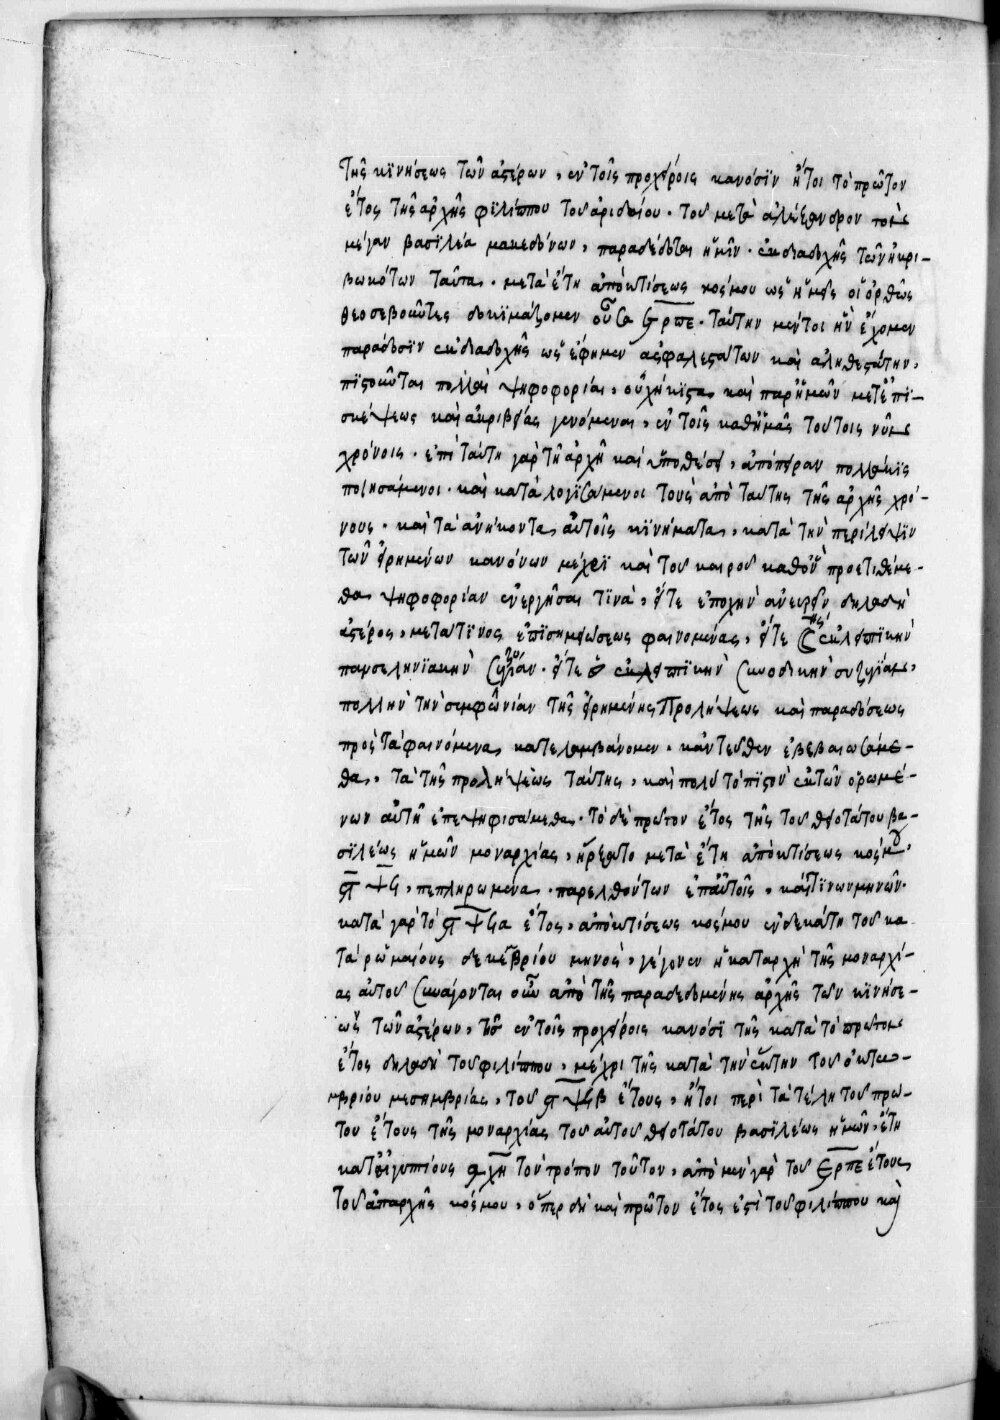 τῆς κϊνήσεως τῶν ἀστέρων, ἐν τοῖς προχείροις κανόσϊν ἤτοι τὸ πρῶτον
ἔτος τῆς ἀρχῆς φϊλίππου τοῦ ἀριδαίου. τοῦ μετὰ ἀλέξανδρον τὸν
μέγαν βασϊλέα μακεδόνων, παραδέδοται ἡμῖν. ἐκ διαδοχῆς τῶν ἠκρι-
βωκότων ταῦτα. μετὰ ἔτη ἀπὸ κτίσεως κόσμου ὡς ἡμεῖς οἱ ὀρθῶς
θεοσεβοῦντες δοκϊμάζομεν οὖσα ͵ερπε. ταύτην μέντοι ἣν ἔχομεν
παράδοσϊν ἐκ διαδοχῆς ὡς ἔφημεν ἀσφαλεστάτων καὶ ἀληθεστάτην,
πϊστοῦνται πολλαὶ ψηφοφορίαι, οὐχήκϊστα καὶ παρ' ἡμῶν μετ' ἐπϊ-
σκέψεως καὶ ἀκριβείας γενόμεναι, ἐν τοῖς καθ' ἡμᾶς τούτοις νῦν
χρόνοις. ἐπὶ ταύτῃ γὰρ τῇ ἀρχῇ καὶ ὑποθέσει, ἀπόπειραν πολλάκϊς
ποιησάμενοι. καὶ καταλογϊσάμενοι τοὺς ἀπὸ ταύτης τῆς ἀρχῆς χρό-
νους. καὶ τὰ ἀνήκοντα αὐτοῖς κϊνήματα, κατὰ τὴν περίληψϊν
τῶν εἰρημένων κανόνων μέχρϊ καὶ τοῦ καιροῦ καθ' ὃν προετιθέμε-
θα ψηφοφορίαν ἐνεργῆσαι τϊνὰ, εἴτε ἐποχὴν ἀνευρεῖν δηλαδὴ
ἀστέρος, μετά τϊνος ἐπϊσημειώσεως φαινομένας, εἴτε ἐκλειπϊκὴν
πανσεληνϊακὴν συζυγίαν. εἴτε ἐκλειπϊκὴν συνοδικὴν συζυγίαν,
πολλὴν τὴν συμφωνίαν τῆς εἰρημένης προλήψεως καὶ παραδόσεως
πρὸς τὰ φαινόμενα κατελαμβάνομεν. κἀντεῦθεν ἐβεβαιωσάμε-
θα, τὰ τῆς προλήψεως ταύτης, καὶ πολὺ τὸ πϊστὸν ἐκ τῶν ὁρωμέ-
νων αὐτῇ ἐπεψηφισάμεθα. τὸ δὲ πρῶτον ἔτος τῆς τοῦ θειοτάτου βα-
σϊλέως ἡμῶν μοναρχίας, ἤρξατο μετὰ ἔτη ἀπὸ κτίσεως κόσμου,
͵ϛψϟ, πεπληρωμένα. παρελθόντων ἐπ' αὐτοῖς, καί τϊνων μηνῶν.
κατὰ γὰρ τὸ ͵ϛψϟα ἔτος, ἀπὸ κτίσεως κόσμου ἐνδεκάτη τοῦ κα-
τὰ ῥωμαίους δεκεβρίου μηνὸς, γέγονεν ἡ καταρχὴ τῆς μοναρχί-
ας αὐτοῦ συνάγονται οὖν ἀπὸ τῆς παραδεδομένης ἀρχῆς τῶν κϊνήσε-
ως τῶν ἀστέρων, ἐν τοῖς προχείροις κανόσϊ τῆς κατὰ τὸ πρῶτον
ἔτος δηλαδὴ τοῦ φιλίππου, μέχρι τῆς κατὰ τὴν ἕκτην τοῦ ὀκτω-
μβρίου μεσημβρίας, τοῦ ͵ϛψϟβ ἔτους, ἤτοι περὶ τὰ τέλη τοῦ πρώ-
του ἔτους τῆς μοναρχίας τοῦ αὐτοῦ θειοτάτου βασϊλέως ἡμῶν, ἔτη
κατ' αἰγυπτίους ͵αχη τὸν τρόπον τοῦτον, ἀπὸ μὲν γὰρ τοῦ ͵ερπε ἔτους
τοῦ ἀπαρχῆς κόσμου, ὅπερ δὴ καὶ πρῶτον ἔτος ἐστὶ τοῦ φιλίππου καὶ